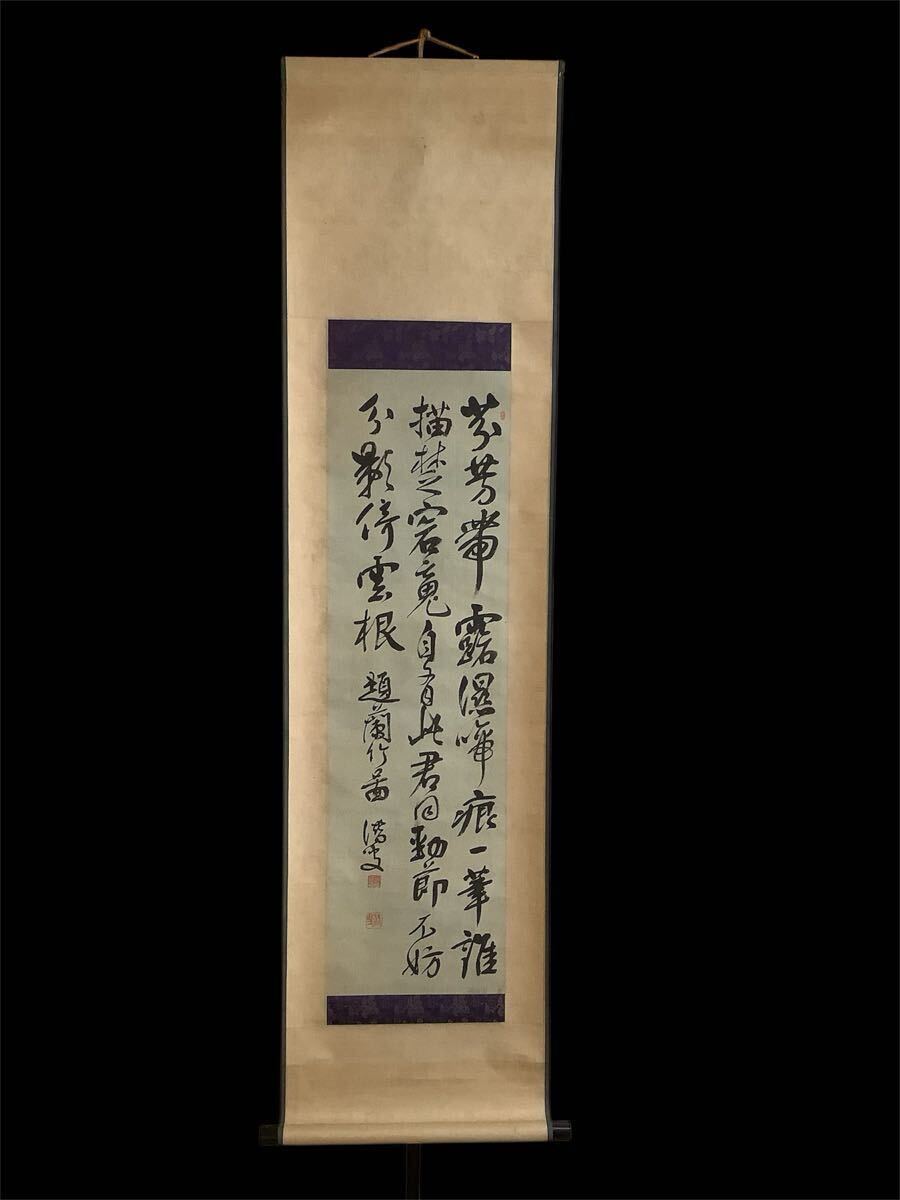 芬芳帶露濕啼痕一筆誰
描楚宕竟自有此君同勁節不妨
分影倚雲根
題蘭竹畫